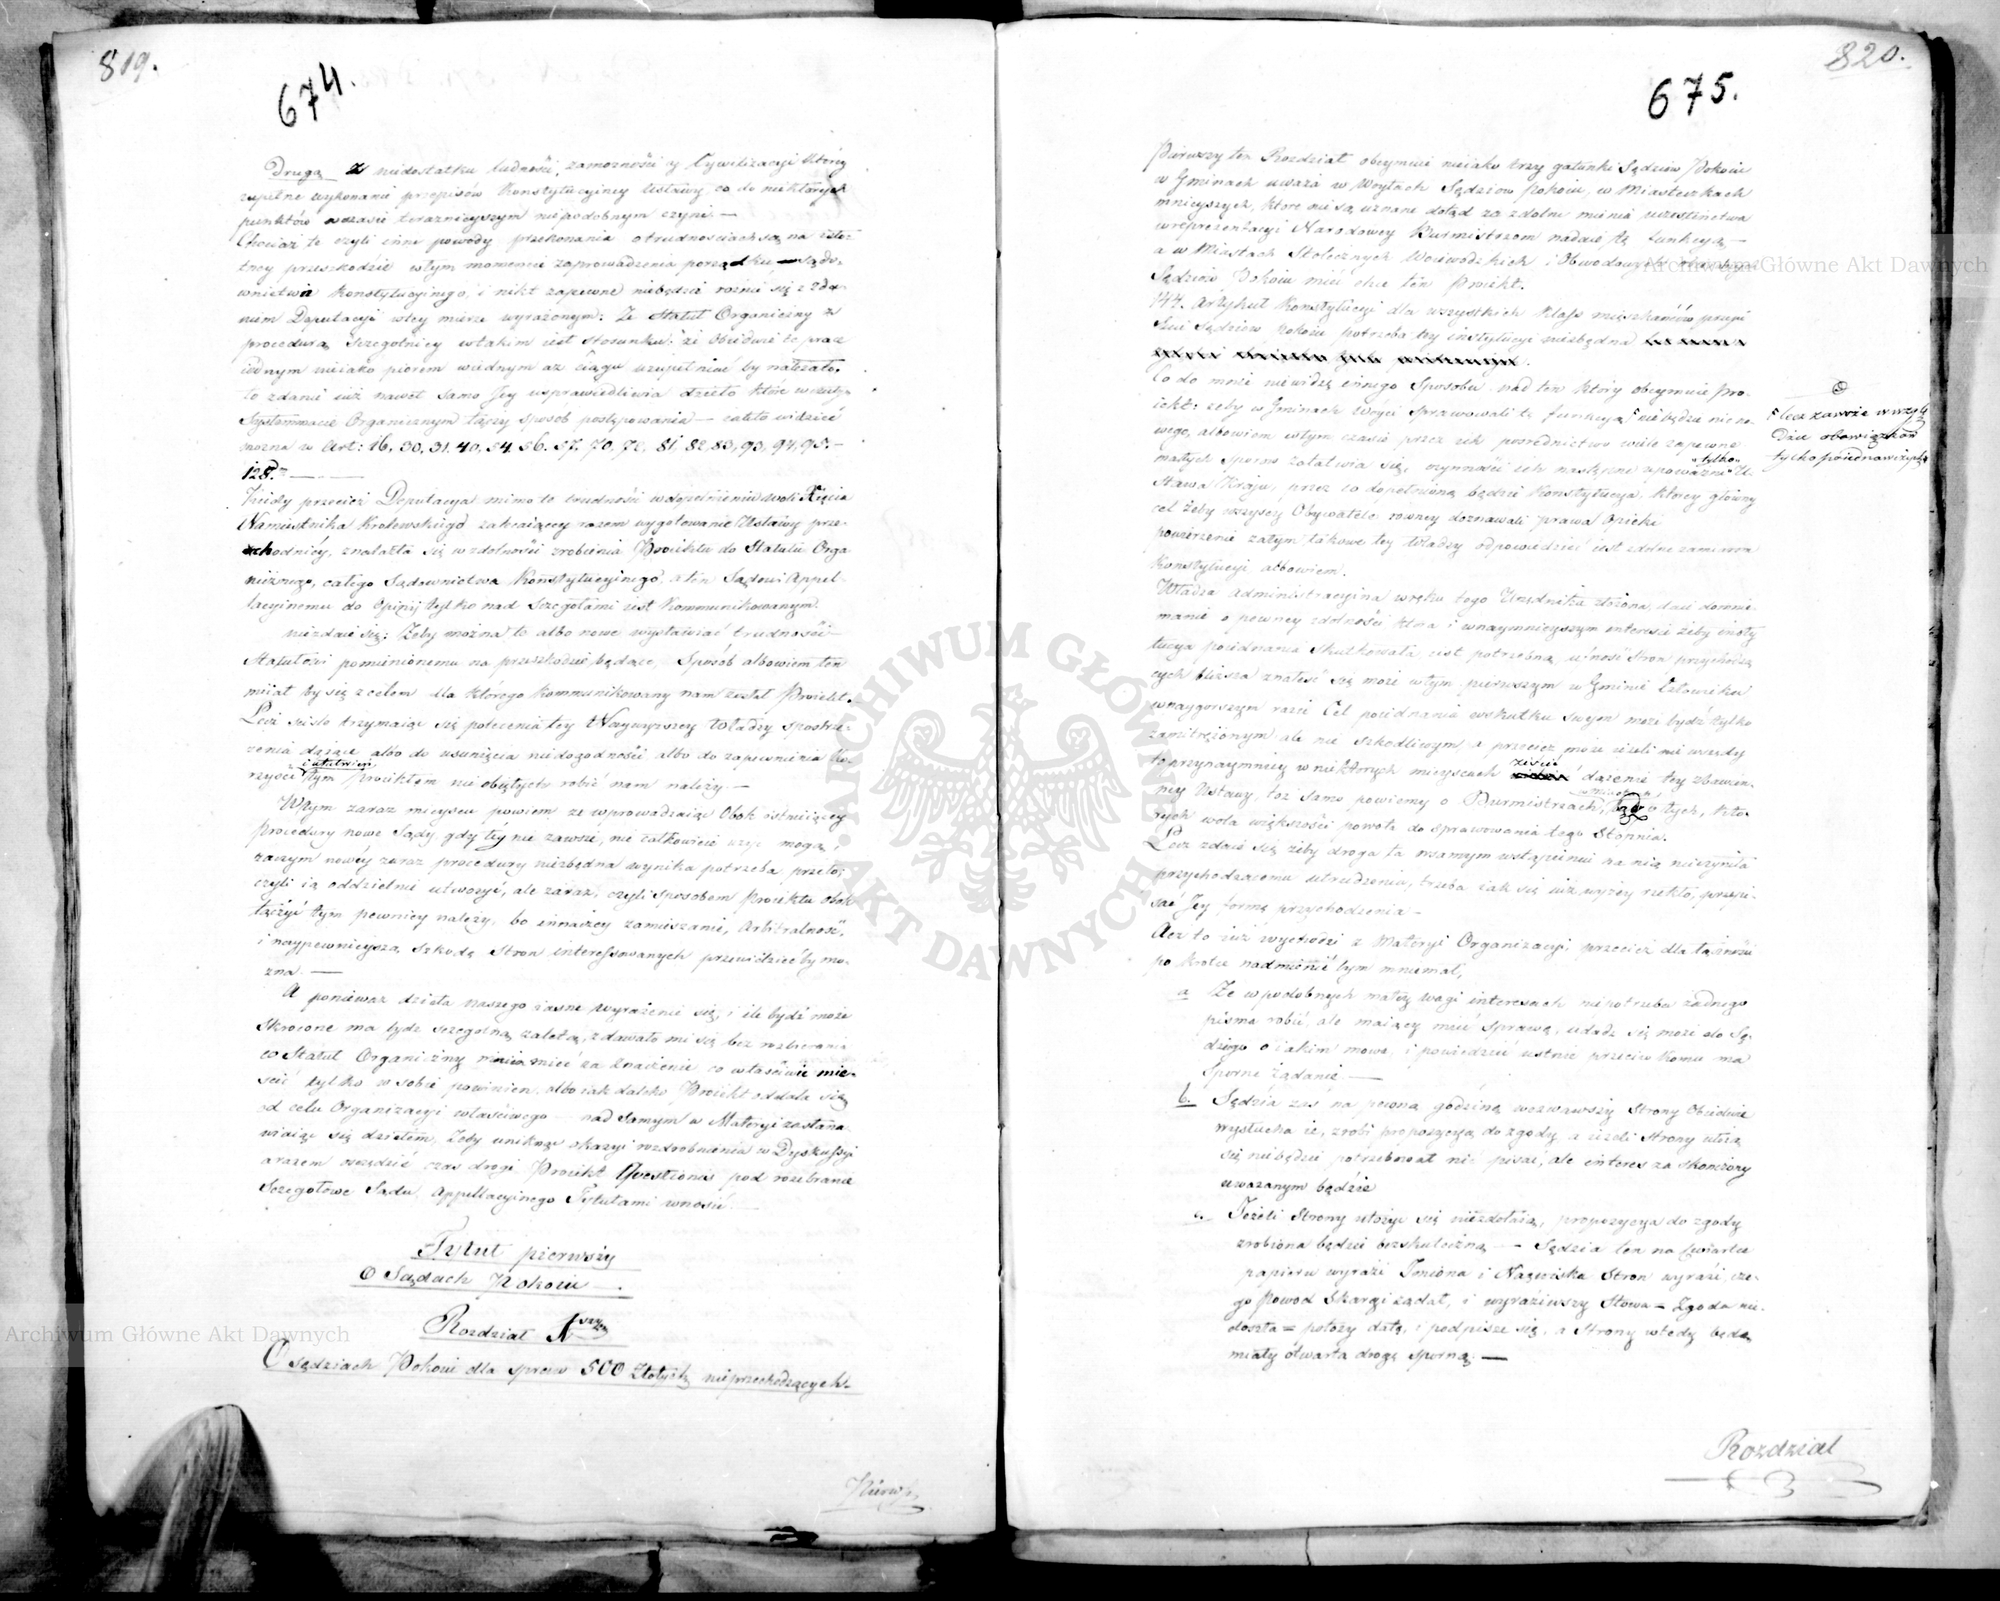 819.
674.
Drugą z niedostatku ludności, zamożności y Cywilizacyi który
zupełne wykonanie przepisów Konstytucyiney Ustawy, co do niektórych
punktów w czasie teraznieyszym niepodobnym czyni —
Chociaż te czyli inne powody przekonania o trudnościach są na iste-
tney przeszkodzie w tym momencie zaprowadzenia porządku — sądo-
wnictwa Konstytucyinego, i nikt zapewne niebędzie roznić się z zda-
niem Deputacyi w tey mierze wyrażonym: Że Statut Organiczny z
procedurą szczegolniey w takim iest stosunku: że Obiedwie te prace
iednym nieiako piorem w iednym aż ciągu uzupełniać by należało,
to zdanie iuż nawet samo Jey usprawiedliwia dzieło które w
Systemmacie Organicznym łączy sposob postępowania — całe to widzieć
można w Art: 16, 30, 31. 40, 54. 56. 57. 70, 72, 81, 82, 83, 93, 94, 95. —
128.
Kiedy przecież Deputacya mimo te trudności w dopełnieniu woli Xięcia
Namiestnika Krolewskiego zalecaiącey razem wygotowanie Ustawy prze-
chodniey, znalazła się w zdolności zrobienia Proiektu do Statutu Orga
nicznego, całego Sądownictwa Konstytucyinego, a ten Sądowi Appel-
lacyinemu do Opinii tylko nad szczegołami iest kommunikowanym.
niezdaie się: Żeby można te albo nowe wystawiać trudności
Statutowi pomienionemu na przeszkodzie będące, Sposób albowiem ten
miiał by się z celem dla którego kommunikowany nam został Proiekt.
Lecz ściśle trzymaiąc się polecenia tey Naywyższey Władzy spostrze-
żenia dążące albo do usunięcia niedogodności albo do zapewnienia Ko-
i ułatwień
rzyści tym Proiektem nie obiętych robić nam należy. —
W tym zaraz mieyscu powiem ze wprowadzaiąc Obok istnieiącey
procedury nowe Sądy, gdy tey nie zawsze, nie całkowicie użyć mogą,
zaczym nowéy zaraz procedury niezbędna wynika potrzeba przeto,
czyli ią oddzielnie utworzyć, ale zaraz, czyli sposobem Proiektu obok
łączyć tym pewniey należy, bo inaczey zamieszanie, Arbitralność,
i naypewnieysza, szkodę Stron interessowanych przewidzieć by mo-
żna. —
A ponieważ dzieła naszego iasne wyrażenie się, i ile bydź może
skrócone ma bydz szczególną zaletą, zdawało mi się bez rozbierania
co Statut Organiczny mieć za znaczenie co właściwie mie-
ścić tylko w sobie powinien, albo iak daleko Proiekt oddala się
od celu Organizacyi właściwego — nad Samym w Materyi zastana
wiaiąc się dziełem, Żeby uniknąć okazyi rozdrobnienia w Dyskussyi
a razem oszędzić czas drogi Proiekt Questionis pod rozebranie
Szczegołowe Sądu Appellacyinego Tytułami wnosić —
Tytuł pierwszy
O Sądach Pokoiu.
Rozdział 1wszy
O Sędziach Pokoiu dla spraw 500 Złotych nieprzechodzących.
Pierwszy
820.
675.
Pierwszy ten Rozdział obeymuie nieiako trzy gatunki Sędziów Pokoiu
w Gminach uważa w Woytach Sędziow Pokoiu, w Miasteczkach
mnieyszych, które nie są uznane dotąd za zdolne mienia uczestnictwa
w reprezentacyi Narodowey Burmistrzom nadaie tę funkcyą —
a w Miastach Stołecznych Woiewodzkich i Obwodowych
Sędziow Pokoiu mieć chce ten Proiekt.
144. Artykuł Konstytucyi dla wszystkich Klass mieszkańców przepi
suie Sędziów Pokoiu potrzeba tey instytucyi niezbędna
Co do mnie niewidzę innego Sposobu nad ten który obeymuie Pro-
iekt: żeby w Gminach Woyci Sprawowali tę funkcyą, niebędzie nic no-
wego, albowiem w tym czasie przez ich pośrednictwo wiele zapewne
małych sporow załatwia się, czynność ich następnie upoważni
„tylko„
Ustawa Kraju, przez co dopełnioną będzie Konstytucya, ktorey główny
cel żeby wszyscy Obywatele rowney doznawali prawa Opieki
powierzenie zatym takowe tey Władzy odpowiedzieć iest zdolne zamiarowi
Konstytucyi albowiem.
Władza Administracyina w ręku tego Urzędnika złożona, daie domnie-
manie o pewney zdolności która i w naymnieyszym interesie żeby insty
tucya poiednania skutkowała iest potrzebną, ufność Stron przychodzą
cych bliższa znaleść się może w tym pierwszym w Gminie Człowieku
w naygorszym razie Cel poiednania w skutku swym może bydź tylko
zamitrężonym ale nie szkodliwym a przecież może ieżeli nie wszędy
to przynaymniey w niektorych mieyscach ziścić dążenie tey zbawien-
ney Ustawy, toż samo powiemy o Burmistrzach, o tych, któ-
rych wola większości powoła do sprawowania tego Stopnia.
Lecz zdaie się żeby droga ta w samym wstąpieniu na nią nieczyniła
przychodzącemu utrudzenia, trzeba iak się iuż wyżey rzekło, przepi-
sać Jey formę przychodzenia —
Acz to iuż wychodzi z Materyi Organizacyi przecież dla łasności
po krotce nadmienić bym mniemał,
a Że w podobnych małey wagi interesach niepotrzeba żadnego
pisma robić, ale maiący mieć sprawę, udadź się może do Sę-
dziego o iakim mowa, i powiedzieć ustnie przeciw komu ma
Sporne żądanie —
b. Sędzia zaś na pewną godzinę wezwawszy Strony Obiedwie
wysłucha ie, zrobi propozycyą do zgody, a ieżeli Strony ułożą
się niebędzie potrzebował nic pisać, ale interes za skończony
uważanym będzie
c. Jeżeli Strony ułożyć się niezdołaią, propozycya do zgody
zrobiona będzie bezskuteczną — Sędzia ten na Ćwiartce
papieru wyrazi Jmiona i Nazwiska Stron wyrazi, cze-
go Powod Skargi żądał, i wyraziwszy Słowa = Zgoda nie-
doszła = położy datę, i podpisze się, a Strony wtedy będą
miały otwartą drogę sporną. —
lecz zawsze względ
dzie obowiązkow
tylko poiednawczych
Rozdział
ARCHIWUM GŁÓWNE AKT DAWNYCH
Archiwum Główne Akt Dawnych
Archiwum Główne Akt Dawnych